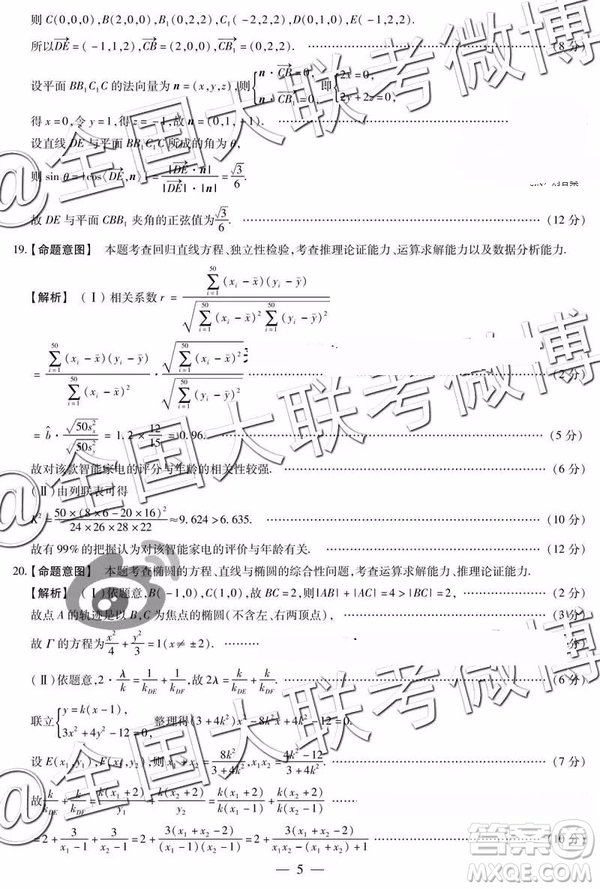 则 C(0,0,0),B(2,0,0),B₁(0,2,2),C₁(-2,2,2),D(0,1,0),E(-1,2,2).
所以 DE = (-1,1,2), CB = (2,0,0), CB₁ = (0,2,2). (8 分)
设平面 BB₁C₁C 的法向量为 n = (x,y,z),则 { n·CB = 0, n·CB₁ = 0, 即 { 2x = 0, 2y + 2z = 0.
得 x = 0,令 y = 1,得 z = -1,故 n = (0,1,-1).
设直线 DE 与平面 BB₁C₁C 所成的角为 θ,
则 sin θ = |cos⟨DE,n⟩| = |DE·n| / |DE|·|n| = √3/6.
故 DE 与平面 CBB₁ 夹角的正弦值为 √3/6. (12 分)
19.【命题意图】 本题考查回归直线方程、独立性检验,考查推理论证能力、运算求解能力以及数据分析能力.
【解析】 (Ⅰ)相关系数 r = ∑(i=1→50)(xᵢ - x̄)(yᵢ - ȳ) / √(∑(i=1→50)(xᵢ - x̄)² ∑(i=1→50)(yᵢ - ȳ)²)
= ∑(i=1→50)(xᵢ - x̄)(yᵢ - ȳ) / ∑(i=1→50)(xᵢ - x̄)² · √(∑(i=1→50)(xᵢ - x̄)²) (2 分)
= b̂ · = 1.2 × 12/15 = 0.96. (5 分)
故对该款智能家电的评分与年龄的相关性较强. (6 分)
(Ⅱ)由列联表可得
K² = 50 × (8×6 - 20×16)² / 24×26×28×22 ≈ 9.624 > 6.635. (10 分)
故有 99% 的把握认为对该智能家电的评价与年龄有关. (12 分)
20.【命题意图】 本题考查椭圆的方程、直线与椭圆的综合性问题,考查运算求解能力、推理论证能力.
【解析】 (Ⅰ)依题意,B(-1,0),C(1,0),故 BC = 2,则 |AB| + |AC| = 4 > |BC| = 2, (2 分)
故点 A 的轨迹是以 B,C 为焦点的椭圆(不含左、右两顶点), (3 分)
故 Γ 的方程为 x²/4 + y²/3 = 1(x ≠ ±2). 分)
(Ⅱ)依题意,2·λ/k = 1/k_DE + 1/k_DF,故 2λ = k/k_DE + k/k_DF. (6 分)
联立 { y = k(x - 1), 3x² + 4y² - 12 = 0, 整理得 (3 + 4k²)x² - 8k²x + 4k² - 12 = 0.
设 E(x₁,y₁),F(x₂,y₂),则 x₁ + x₂ = 8k²/(3 + 4k²), x₁x₂ = (4k² - 12)/(3 + 4k²). (7 分)
故 k/k_DE + k/k_DF = k(x₁+2)/y₁ + k(x₂+2)/y₂ = k(x₁+2)/k(x₁-1) + k(x₂+2)/k(x₂-1)
= 2 + 3/(x₁-1) + 3/(x₂-1) = 2 + 3(x₁+x₂-2)/(x₁-1)(x₂-1) = 2 + (10 分)
— 5 —
@全国大联考微博
@全国大联考微博
@全国大联考微博
作业帮
MXEQE.COM